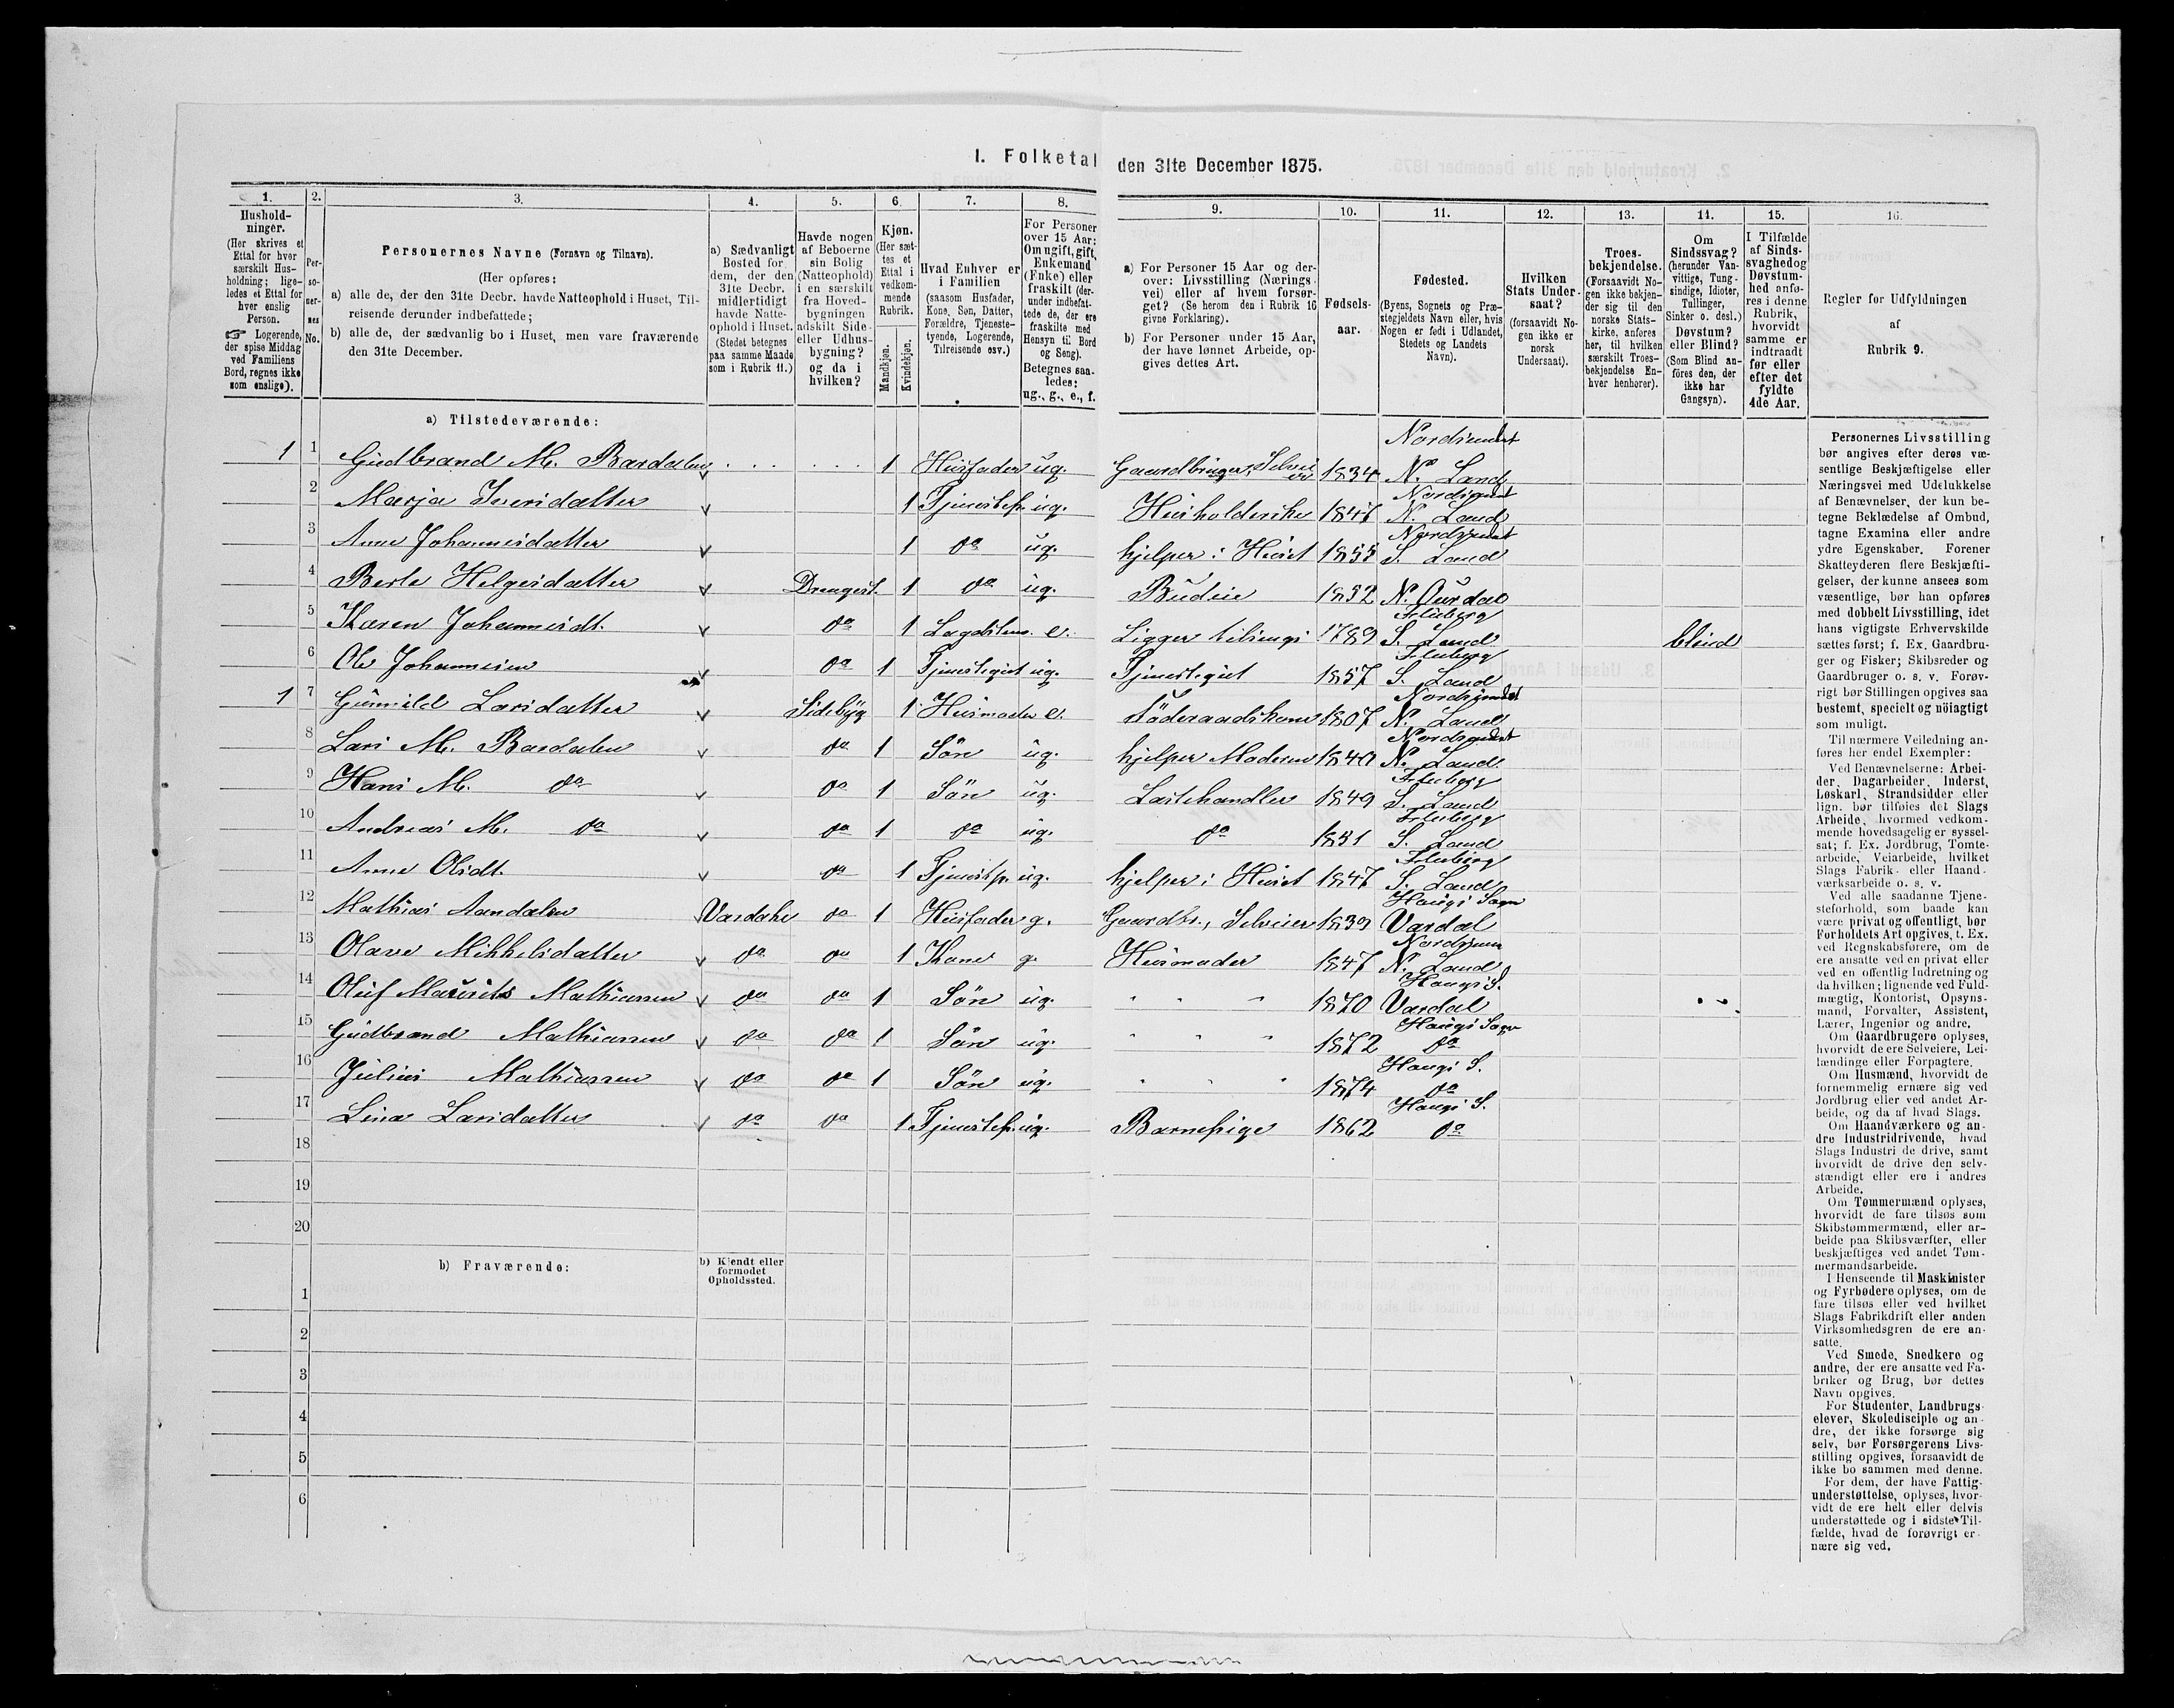 I. Folketal den 31te December 1875.
1. 2. 3. 4. 5. 6. 7. 8. 9. 10. 11. 12. 13. 14. 15. 16.
Hushold-
ninger.
(Her skrives et
Ettal for hver
særskilt Hus-
holdning; lige-
ledes et Ettal for
hver enslig
Person.
☞ Logerende,
der spise Middag
ved Familiens
Bord, regnes ikke
som enslige).
Per-
so-
ner-
nes
No.
Personernes Navne (Fornavn og Tilnavn).
(Her opføres:
a) alle de, der den 31te Decbr. havde Natteophold i Huset, Til-
reisende derunder indbefattede;
b) alle de, der sædvanlig bo i Huset, men vare fraværende
den 31te December.
a) Sædvanligt
Bosted for
dem, der den
31te Decbr.
midlertidigt
havde Natte-
ophold i Huset.
(Stedet betegnes
paa samme Maade
som i Rubrik 11.)
Havde nogen
af Beboerne
sin Bolig
(Natteophold)
i en særskilt
fra Hoved-
bygningen
adskilt Side-
eller Udhus-
bygning?
og da i
hvilken?
Kjøn.
(Her sæt-
tes et
Ettal i
vedkom-
mende
Rubrik.
Mandkjøn.
Kvindekjøn.
Hvad Enhver er
i Familien
(saasom Husfader,
Kone, Søn, Datter,
Forældre, Tjeneste-
tyende, Logerende,
Tilreisende osv.)
For Personer
over 15 Aar:
Om ugift, gift,
Enkemand
(Enke) eller
fraskilt (der-
under indbefat-
tede de, der ere
fraskilte med
Hensyn til Bord
og Seng).
Betegnes saa-
ledes:
ug., g., e., f.
a) For Personer 15 Aar og der-
over: Livsstilling (Nærings-
vei) eller af hvem forsør-
get? (Se herom den i Rubrik 16
givne Forklaring).
b) For Personer under 15 Aar,
der have lønnet Arbeide, op-
gives dettes Art.
Fødsels-
aar.
Fødested.
(Byens, Sognets og Præ-
stegjeldets Navn eller, hvis
Nogen er født i Udlandet,
Stedets og Landets
Navn).
Hvilken
Stats Under-
saat?
(forsaavidt No-
gen ikke er
norsk
Undersaat).
Troes-
bekjendelse.
(Forsaavidt No-
gen ikke bekjen-
der sig til den
norske Stats-
kirke, anføres
her, til hvilken
særskilt Troes-
bekjendelse En-
hver henhører).
Om
Sindssvag?
(herunder Van-
vittige, Tung-
sindige, Idioter,
Tullinger,
Sinker o. desl.)
Døvstum?
eller Blind?
(Som Blind an-
føres den, der
ikke har
Gangsyn).
I Tilfælde
af Sinds-
svaghed og
Døvstum-
hed anfø-
res i denne
Rubrik,
hvorvidt
samme er
indtraadt
før eller
efter det
fyldte
4de Aar.
Regler for Udfyldningen
af
Rubrik 9.
a) Tilstedeværende:
1 1 Gudbrand M. Bardalen 1 Husfader ug. Gaardbruger, Selveier 1834 Nordsindet N. Land
2 Marja Iversdatter 1 Tjenestep. ug. Husholderske 1847 Nordsindet N. Land
3 Anne Johannesdatter 1 do ug. hjelper i Huset 1855 Nordsindet S. Land
4 Berte Helgesdatter Drengest. 1 do ug. Budeie 1832 N. Ourdal
5 Karen Johannesdt. do 1 Lægdslem e. Ligger tilsengs 1789 Fluberg S. Land blind
6 Ole Johannesen do 1 Tjenestegut ug. Tjenestegut 1857 Fluberg S. Land
1 7 Gunnild Larsdatter Sidebyg 1 Husmoder e. Föderaadskone 1807 Nordsindet N. Land
8 Lars M. Bardalen do 1 Sön ug. hjelper Moderen 1840 Nordsindet N. Land
9 Hans M. do do 1 Sön ug. Lastehandler 1849 Fluberg S. Land
10 Andreas M. do do 1 do ug. do 1851 Fluberg S. Land
11 Anne Olsdt. do 1 Tjenestp. ug. hjelper i Huset 1847 Fluberg S. Land
12 Mathias Aandalen Vardahl do 1 Husfader g. Gaardbr., Selveier 1839 Haugs Sogn Vardal
13 Olave Mikkelsdatter do do 1 Kone g. Husmoder 1847 Nordsinn N. Land
14 Oluf Mauritz Mathiassen do do 1 Sön ug. " " " 1870 Haugs S. Vardal
15 Gudbrand Mathiassen do do 1 Sön ug. " " " 1872 Haugs Sogn do
16 Julius Mathiassen do do 1 Sön ug. " " " 1874 Haugs S. do
17 Lina Larsdatter do do 1 Tjenestep. ug. Barnepige 1862 Haugs S. do
18
19
20
b) Fraværende:
b) Kjendt eller
formodet
Opholdssted.
1
2
3
4
5
6
Personernes Livsstilling
bør angives efter deres væ-
sentlige Beskjæftigelse eller
Næringsvei med Udelukkelse
af Benævnelser, der kun be-
tegne Beklædelse af Ombud,
tagne Examina eller andre
ydre Egenskaber. Forener
Skatteyderen flere Beskjæfti-
gelser, der kunne ansees som
væsentlige, bør han opføres
med dobbelt Livsstilling, idet
hans vigtigste Erhvervskilde
sættes først; f. Ex. Gaardbru-
ger og Fisker; Skibsreder og
Gaardbruger o. s. v. Forøv-
rigt bør Stillingen opgives saa
bestemt, specielt og nöiagtigt
som muligt.
Til nærmere Veiledning an-
føres her endel Exempler:
Ved Benævnelserne: Arbei-
der, Dagarbeider, Inderst,
Løskarl, Strandsidder eller
lign. bør tilføies det Slags
Arbeide, hvormed vedkom-
mende hovedsagelig er syssel-
sat; f. Ex. Jordbrug, Tomte-
arbeide, Veiarbeide, hvilket
Slags Fabrik- eller Haand-
værksarbeide o. s. v.
Ved alle saadanne Tjene-
steforhold, som baade kan
være privat og offentligt, bør
Forholdets Art opgives, t. Ex.
ved Regnskabsførere, om de
ere ansatte ved en privat eller
ved en offentlig Indretning og
da hvilken; lignende ved Fuld-
mægtig, Kontorist, Opsyns-
mand, Forvalter, Assistent,
Lærer, Ingeniør og andre.
Om Gaardbrugere oplyses,
hvorvidt de ere Selveiere, Lei-
lændinge eller Forpagtere.
Om Husmænd, hvorvidt de
fornemmelig ernære sig ved
Jordbrug eller ved andet Ar-
beide, og da af hvad Slags.
Om Haandværkere og an-
dre Industridrivende, hvad
Slags Industri de drive, samt
hvorvidt de drive den selv-
stændigt eller ere i andres
Arbeide.
Om Tømmermænd oplyses,
hvorvidt de fare tilsøs som
Skibstømmermænd, eller ar-
beide paa Skibsværfter, eller
beskjæftiges ved andet Tøm-
mermandsarbeide.
I Henseende til Maskinister
og Fyrbødere oplyses, om de
fare tilsøs eller ved hvilket
Slags Fabrikdrift eller anden
Virksomhedsgren de ere an-
satte.
Ved Smede, Snedkere og
andre, der ere ansatte ved Fa-
briker og Brug, bør dettes
Navn opgives.
For Studenter, Landbrugs-
elever, Skoledisciple og an-
dre, der ikke forsørge sig
selv, bør Forsørgerens Livs-
stilling opgives, forsaavidt de
ikke bo sammen med denne.
For dem, der have Fattig-
understøttelse, oplyses, hvor-
vidt de ere helt eller delvis
understøttede og i sidste Til-
fælde, hvad de forøvrigt er-
nære sig ved.